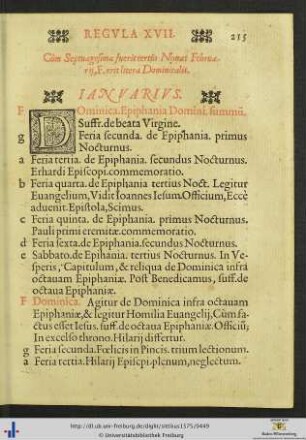 REGVLA XVII.
215
Cùm Septuagesima fuerit tertio Nonas Februa-
rij, F. erit litera Dominicalis.
IANVARIVS.
F DOminica. Epiphania Domini. summũ.
Suffr. de beata Virgine.
g Feria secunda. de Epiphania. primus
Nocturnus.
a Feria tertia. de Epiphania. secundus Nocturnus.
Erhardi Episcopi. commemoratio.
b Feria quarta. de Epiphania tertius Noct. Legitur
Euangelium, Vidit Ioannes Iesum. Officium, Eccè
aduenit. Epistola, Scimus.
c Feria quinta. de Epiphania. primus Nocturnus.
Pauli primi eremitæ. commemoratio.
d Feria sexta. de Epiphania. secundus Nocturnus.
e Sabbato. de Epiphania. tertius Nocturnus. In Ve-
speris, Capitulum, & reliqua de Dominica infrà
octauam Epiphaniæ. Post Benedicamus, suff. de
octaua Epiphaniæ.
F Dominica. Agitur de Dominica infrà octauam
Epiphaniæ, & legitur Homilia Euangelij, Cùm fa-
ctus esset Iesus. suff. de octaua Epiphaniæ. Officiũ,
In excelso throno. Hilarij differtur.
g Feria secunda. Fœlicis in Pincis. trium lectionum.
a Feria tertia. Hilarij Episcpi. plenum, neglectum.
http://dl.ub.uni-freiburg.de/diglit/sittikus1575/0449
© Universitätsbibliothek Freiburg